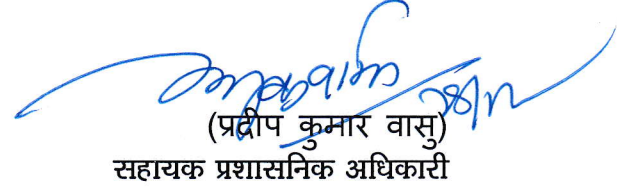 (प्रदीप कुमार वासु)
सहायक प्रशासनिक अधिकारी